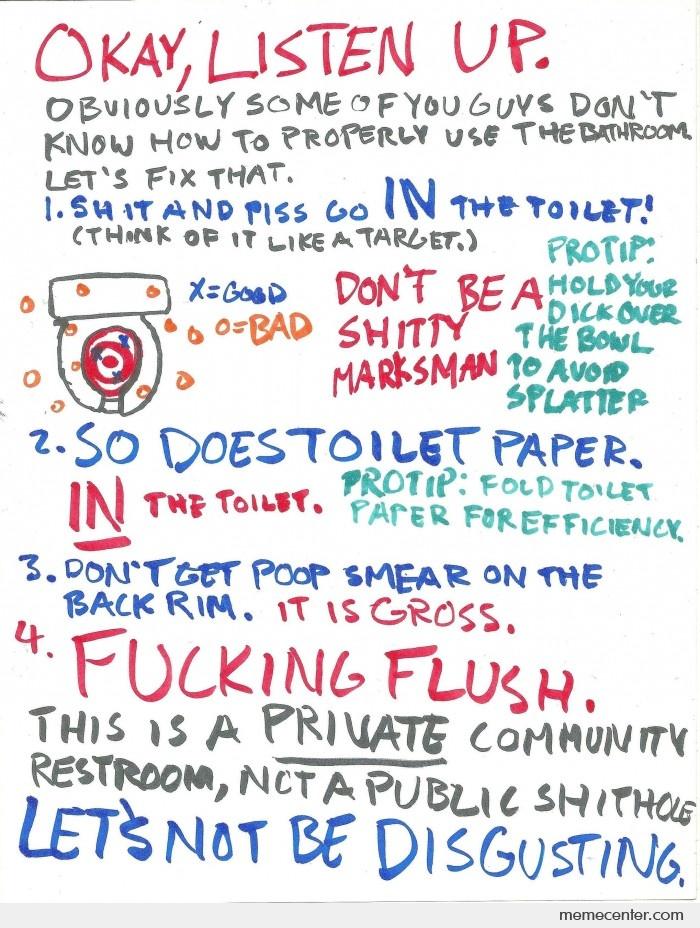 OKAY, LISTEN UP.
OBVIOUSLY SOME OF YOU GUYS DON'T
KNOW HOW TO PROPERLY USE THE BATHROOM.
LET'S FIX THAT.
1. SHIT AND PISS GO IN THE TOILET!
(THINK OF IT LIKE A TARGET.)
X=GOOD
O=BAD
DON'T BE A
SHITTY
MARKSMAN
PROTIP:
HOLD YOUR
DICK OVER
THE BOWL
TO AVOID
SPLATTER
2. SO DOES TOILET PAPER.
IN THE TOILET.
PROTIP: FOLD TOILET
PAPER FOR EFFICIENCY.
3. DON'T GET POOP SMEAR ON THE
BACK RIM. IT IS GROSS.
4. FUCKING FLUSH.
THIS IS A PRIVATE COMMUNITY
RESTROOM, NOT A PUBLIC SHITHOLE
LET'S NOT BE DISGUSTING.
memecenter.com